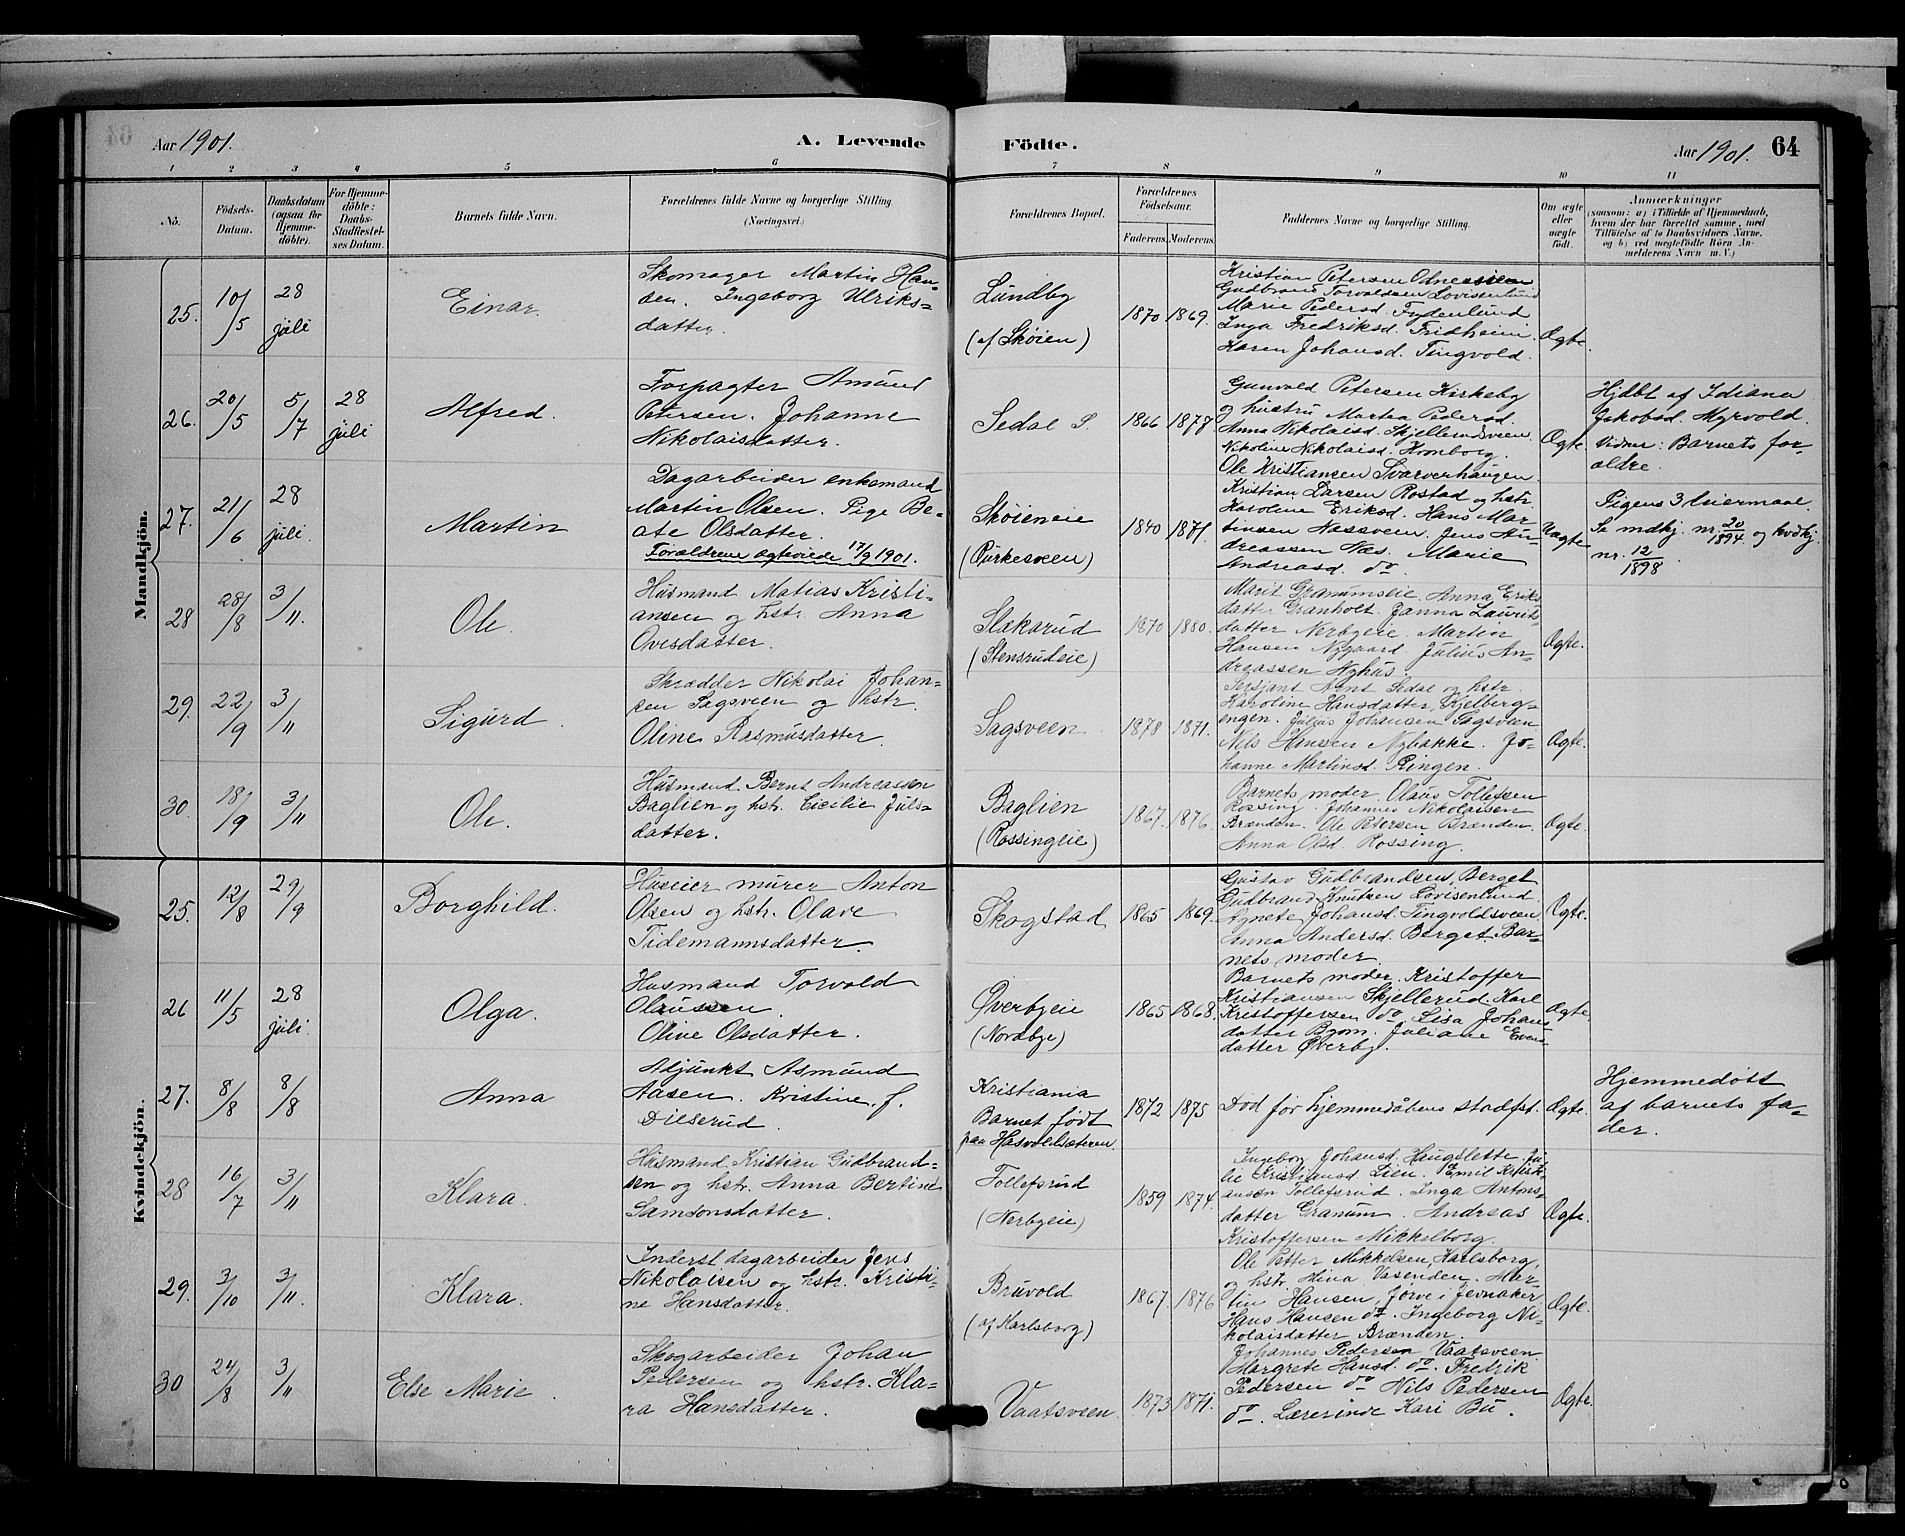 Aar 1901. A. Levende Födte. Aar 1901. 64
1 2 3 4 5 6 7 8 9 10 11
No.
Födsels-
Datum.
Daabsdatum
(ogsaa för
Hjemme-
döbte).
For Hjemme-
döbte:
Daabs-
Stadfæstel-
ses Datum.
Barnets fulde Navn.
Forældrenes fulde Navne og borgerlige Stilling.
(Næringsvei.)
Forældrenes Bopæl.
Forældrenes
Födselsaar.
Faderens. Moderens.
Faddernes Navne og borgerlige Stilling.
Om ægte
eller
uægte
födt.
Anmærkninger
(saasom: a) i Tilfælde af Hjemmedaab,
hvem der har forrettet samme, med
Tilföielse af to Daabsvidners Navne,
og b) ved uægtefödte Börn An-
melderens Navn m.V.)
Mandkjön.
25.
10/5
28
juli
Einar.
Skomager Martin Han-
sen. Ingeborg Ulriks-
datter.
Lundby
(af Skøien)
1870 1869.
Kristian Petersen
Gudbrand Torvoldsen Lovisenlund
Marie Pedersd. Frydenlund
Inga Fredriksd. Fridheim.
Karen Johansd. Tingvold.
Ægte.
26.
20/5
5/7
28
juli
Alfred.
Forpagter Amund
Petersen. Johanne
Nikolaisdatter.
Sedal S.
1866 1878
Gunvold Petersen Kirkeby
og hustru Martea Pedersd.
Anna Nikolaisd. Skjellerudsveen
Nikoline Nikolaisd. Kronborg.
Ole Kristiansen Svarverhaugen
Ægte.
Hjdbt af Idiana
Jakobsd. Myrvold.
Vidner: Barnets for-
ældre.
27.
21/6
28
juli.
Martin
Dagarbeider enkemand
Martin Olsen. Pige Be-
ate Olsdatter.
Forældrene ægteviede 17/9 1901.
Skøieneie
(Purkesveen)
1840 1871.
Kristian Larsen Rostad og hstr
Karoline Eriksd. Hans Mar-
tinsen Næssveen. Jens An-
dreassen Næs. Marie
Andreasd. do
Uægte
Pigens 3 leiermaal.
Se mdkj. nr. 20/1894 og kvdkj.
nr. 12/1898
28
28/8
3/11.
Ole.
Husmand Matias Kristi-
ansen og hstr. Anna
Ovesdatter.
Slækarud
(Stensrudeie)
1870 1880.
Marit Grammseie. Anna Eriks
datter Granholt. Janna Laurits-
datter Nerbyeie. Martin
Hansen Nygaard. Julius An-
dreassen Nyhus.
Ægte.
29.
22/9
3/11
Sigurd.
Skrædder Nikolai Johan-
sen Sagsveen og hstr.
Oline Rasmusdatter.
Sagsveen
1878 1871.
Sersjant Bernt Sedal og hstr.
Karoline Hansdatter, Kjelberg-
engen. Julius Johansen Sagsveen
Nils Hansen Nybakke. Jo-
hanne Martinsd. Ringen.
Ægte.
30.
18/9
3/11
Ole.
Husmand Bernt Andreassen
Baglien og hstr. Cicilie Juls-
datter.
Baglien
(Rossingeie)
1867. 1876.
Barnets moder. Olaus Tollefsen
Rossing. Johannes Nikolaisen
Brænden. Ole Petersen Brænden.
Anna Olsd. Rossing.
Ægte.
Kvindekjön.
25.
12/8
29/9
Borghild.
Huseier murer Anton
Olsen og hstr. Olave
Tidemannsdatter.
Skogstad
1865 1869.
Gustav Gudbrandsen, Berget.
Gudbrand Knutsen Lovisenlund.
Agnete Johansd. Tingvoldsveen.
Anna Andersd. Berget. Bar-
nets moder.
Ægte.
26
11/5
28
juli.
Olga.
Husmand Torvold
Olaussen.
Oline Olsdatter.
Øverbyeie
(Nordbye)
1865 1868.
Barnets moder. Kristoffer
Kristiansen Skjellerud. Karl
Kristoffersen do Lisa Johans-
datter Byom. Juliane Evens-
datter Øverby.
Ægte.
27.
8/8
8/8
Anna
Adjunkt Asmund
Aasen. Kristine f.
Diserud.
Kristiania
Barnet født
paa Hasvoldsæteren.
1872 1875
Død før hjemmedåbens stadfst.
Ægte.
Hjemmedøbt
af barnets fa-
der.
28
16/7
3/11
Klara.
Husmand Kristian Gudbrand-
sen og hstr. Anna Bertine
Samsonsdatter.
Tollefsrud
(Nerbyeie)
1859 1874.
Ingeborg Johansd. Haugslette. Ju-
lie Kristiansd Lien. Emil Kristi-
ansen Tollefsrud. Inga Antons-
datter Granum. Andreas
Kristoffersen Mikkelborg.
Ægte.
29.
3/10
3/11.
Klara.
Inderst dagarbeider Jens
Nikolaisen og hstr. Kristi-
ne Hansdatter.
Bruvold
(af Karlsborg)
1867. 1876
Ole Petter Mikkelsen, Karlsborg,
og hstr. Mina Vasenden. Mar-
tin Hansen, Jørve i Jevnaker
Hans Hansen do. Ingeborg Ni-
kolaisdatter Brænden.
Ægte.
30
24/8
3/11
Else Marie.
Skogarbeider Johan
Pedersen og hstr. Kla-
ra Hansdatter.
Vaatsveen
1873 1871.
Johannes Pedersen Vaatsveen
Margrete Hansd. do. Fredrik
Pedersen do Nils Pedersen
do. Lærerinde Kari Bu.
Ægte.